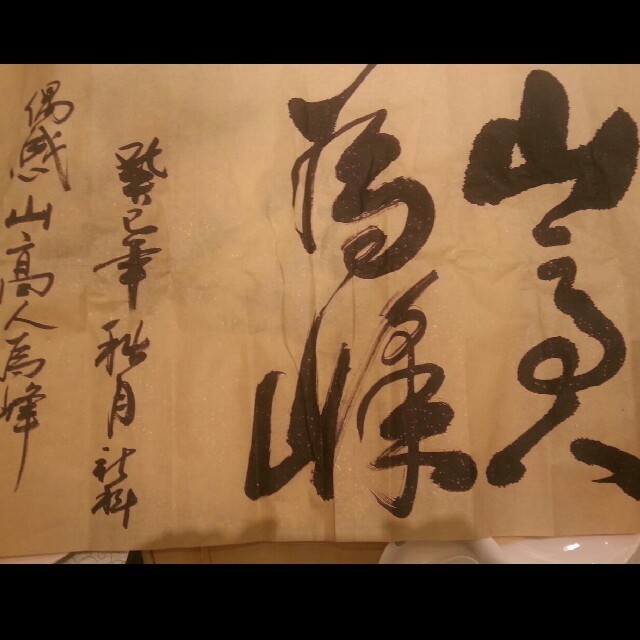 山高人
為峰
癸巳年秋月
偶感山高人為峰